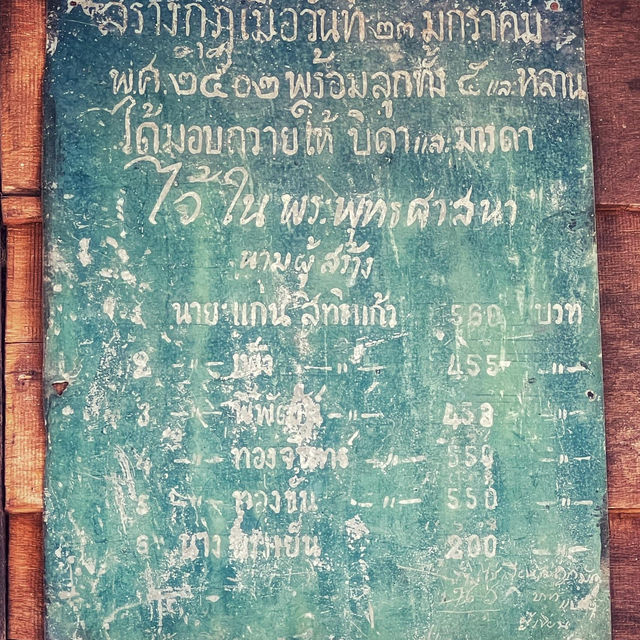 สร้างกุฏิเมื่อวันที่ ๒๓ มกราคม
พ.ศ. ๒๕๐๒ พร้อมลูกทั้ง ๕ และหลาน
ได้มอบถวายให้ บิดาและมารดา
ไว้ ใน พระพุทธศาสนา
นามผู้สร้าง
นายแกน สิทธิแก้ว 560 บาท
2 -"- -"- 455 -"-
3 -"- พิพัฒน์ -"- 453 -"-
4 -"- ทองจันทร์ -"- 550 -"-
5 -"- ทองขัน -"- 550 -"-
6 นาง 200 -"-